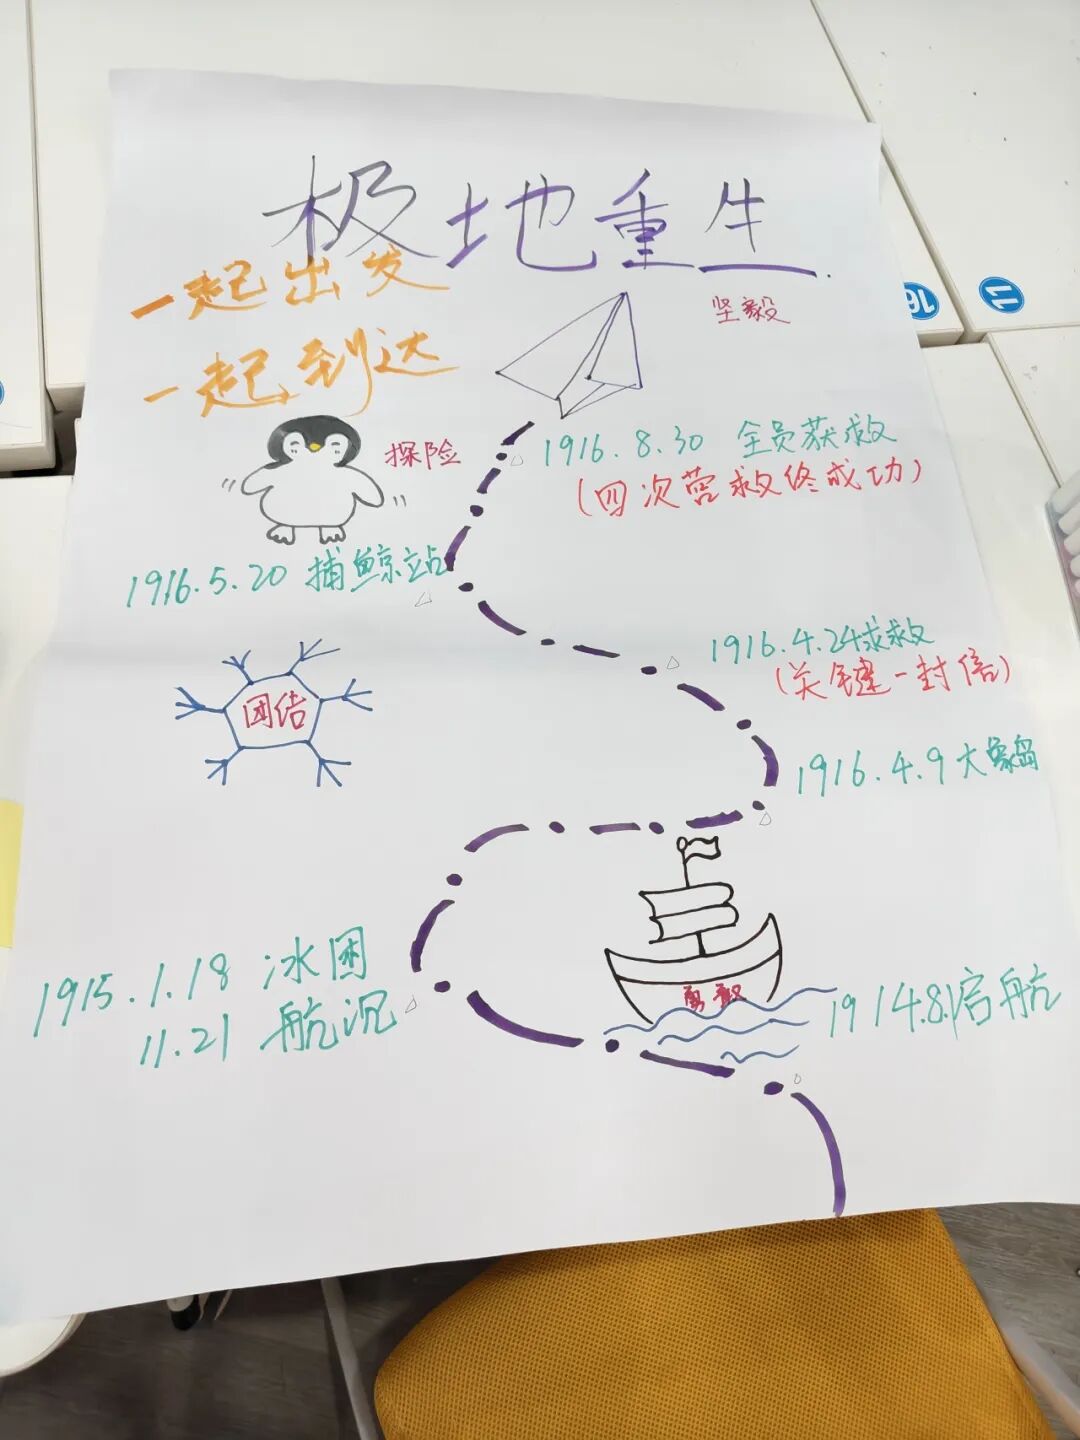 极地重生
一起出发
一起到达
坚毅
探险
1916.8.30 全员获救
(四次营救终成功)
1916.5.20 捕鲸站
1916.4.24求救
(关键一封信)
团结
1916.4.9大象岛
1915.1.18 冰困
11.21 航沉
勇敢
1914.8.1启航
16
11